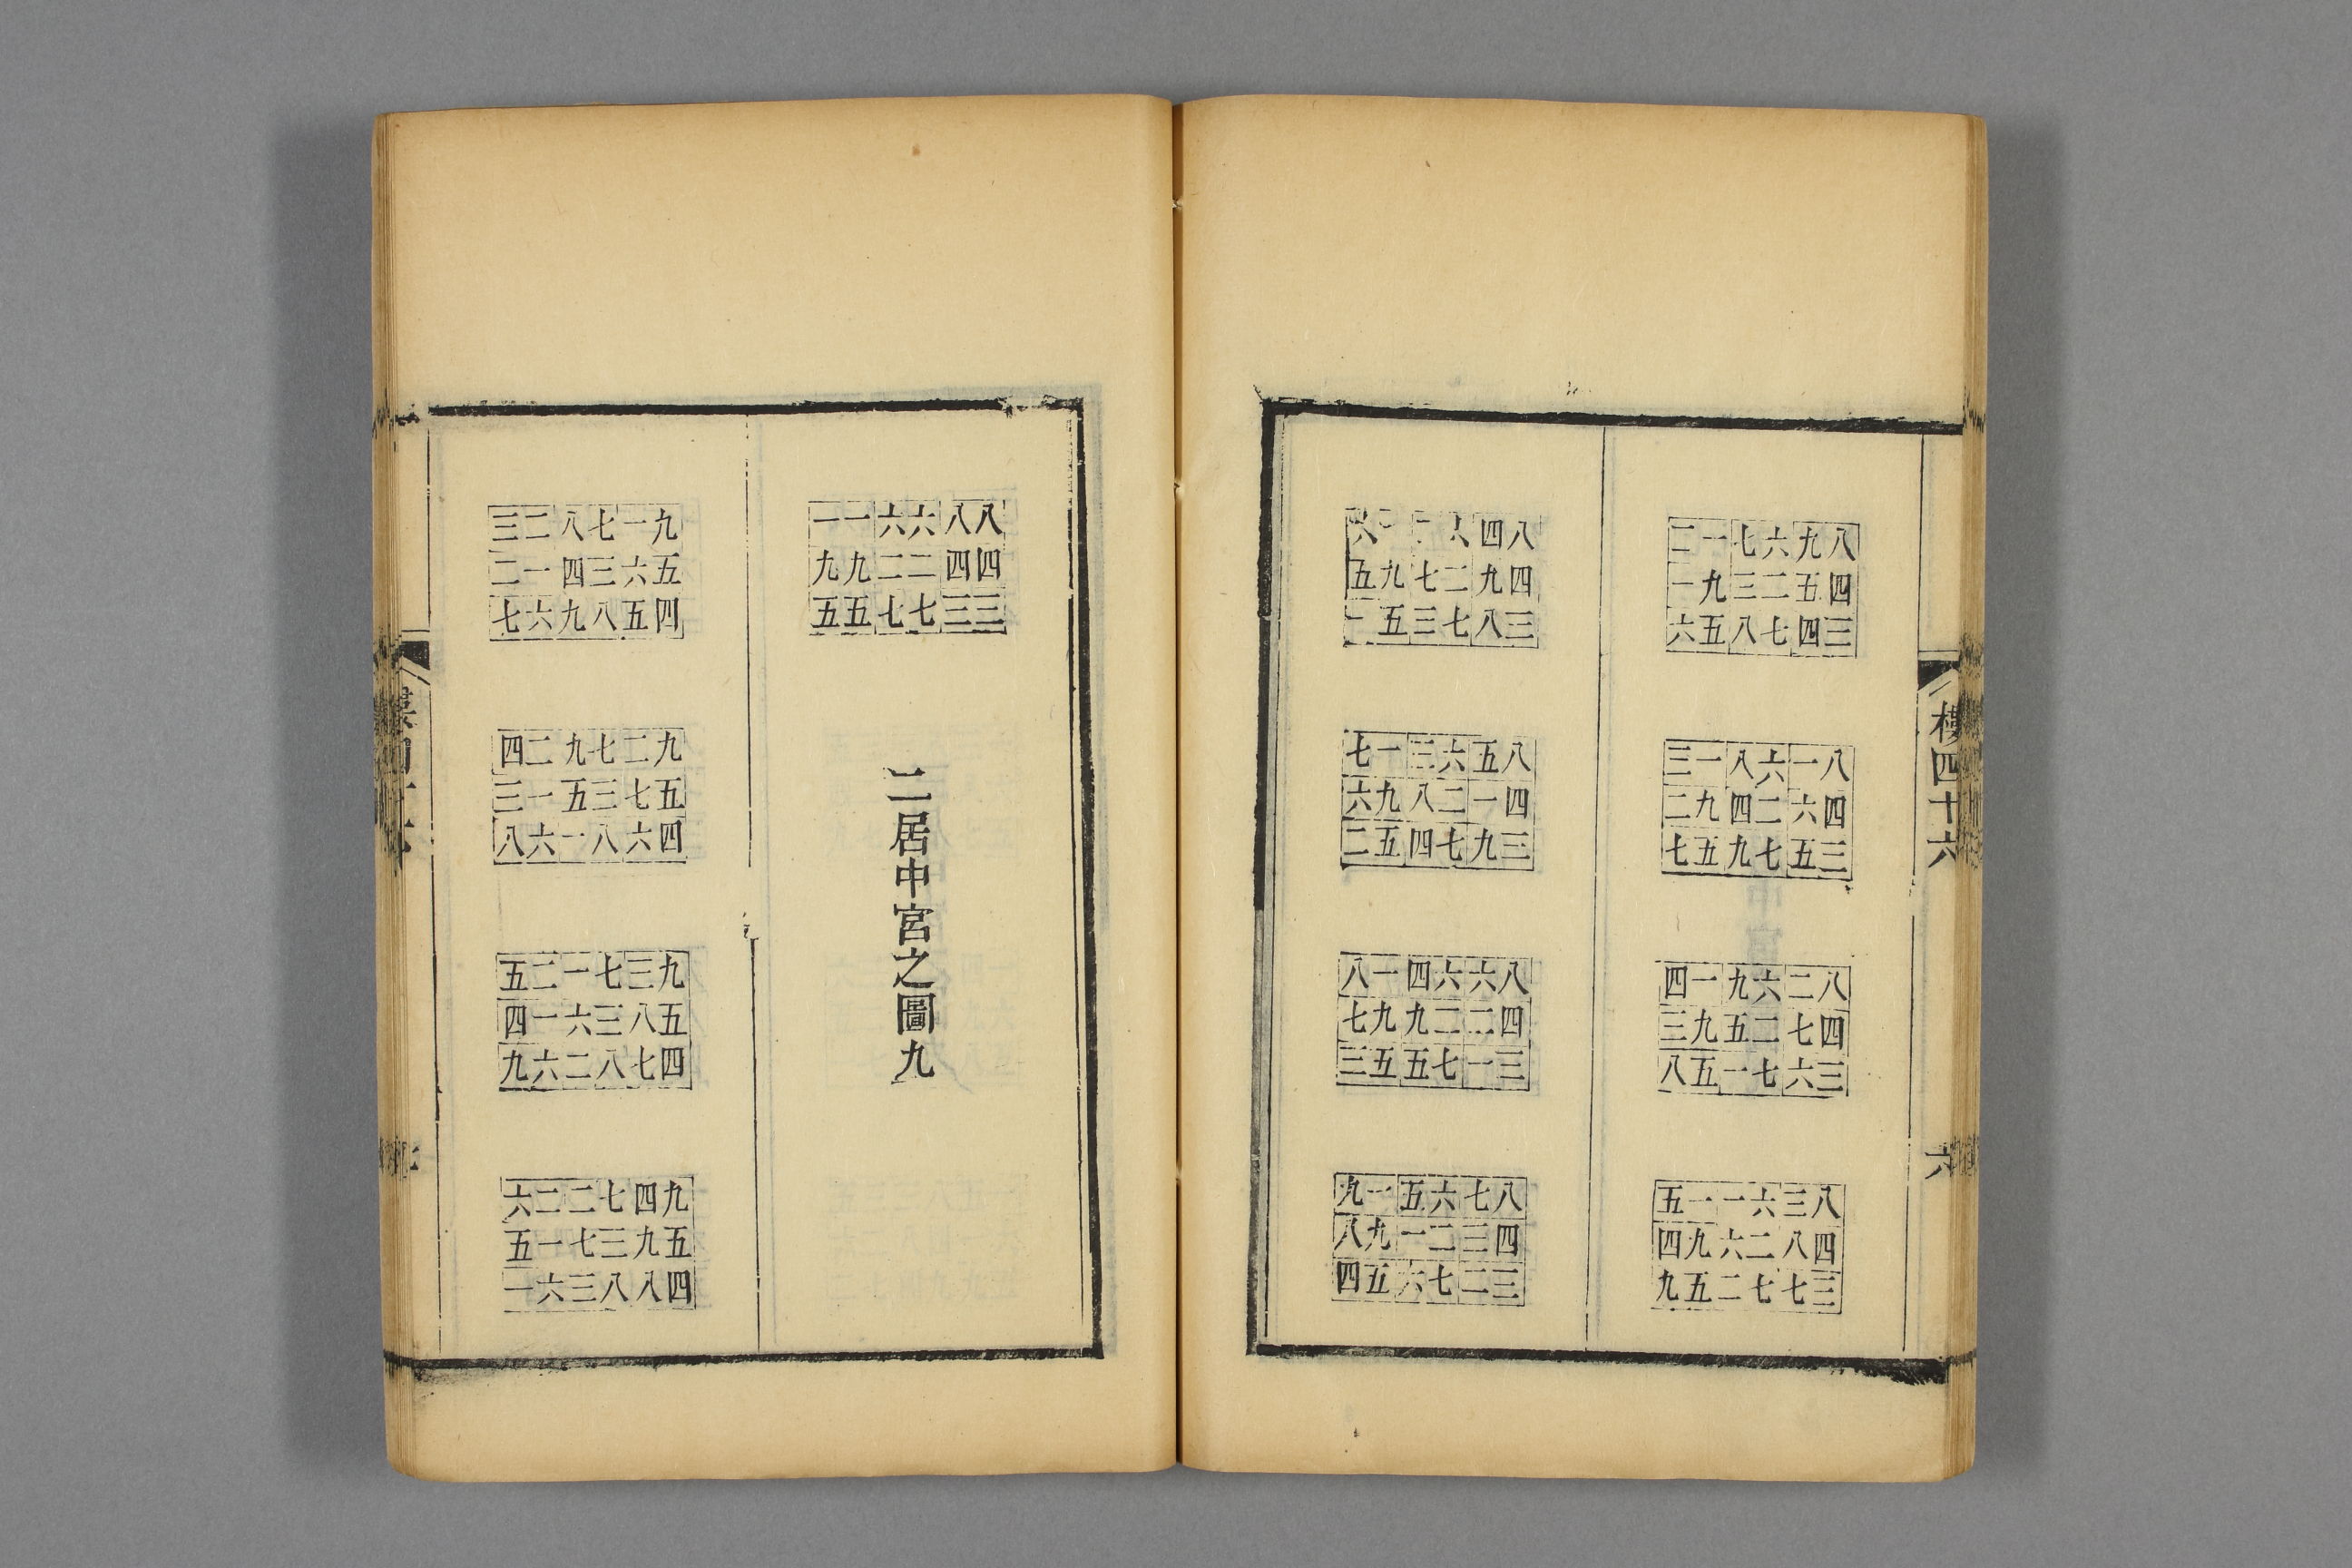 樓四十六
六
二一七六九八
一九三二五四
六五八七四三
三一八六一八
二九四二六四
七五九七五三
四一九六二八
三九五二七四
八五一七六三
五一一六三八
四九六二八四
九五二七七三
六四八
五九七二九四
一五三七八三
七一三六五八
六九八二一四
二五四七九三
八一四六六八
七九九二二四
三五五七一三
九一五六七八
八九一二三四
四五六七二三
一一六六八八
九九二二四四
五五七七三三
二居中宮之圖九
三二八七一九
二一四三六五
七六九八五四
四二九七二九
三一五三七五
八六一八六四
五二一七三九
四一六三八五
九六二八七四
六二二七四九
五一七三九五
一六三八八四